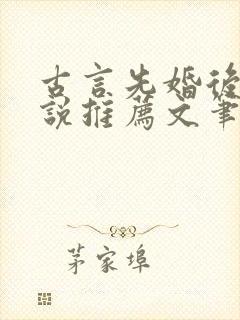 古言先婚後
說推薦文筆
茅家埠